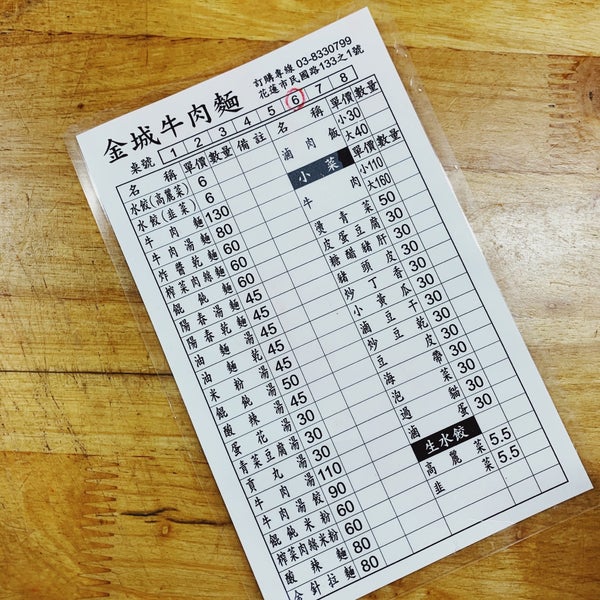 訂購專線 03-8330799
花蓮市民國路133之1號
金城牛肉麵
桌號 1 2 3 4 5 6 7 8
名稱 單價 數量 備註
水餃(高麗菜) 6
水餃(韭菜) 6
牛肉麵 130
牛肉湯麵 80
炸醬乾麵 60
榨菜肉絲麵 60
餛飩麵 60
陽春湯麵 45
陽春乾麵 45
油麵湯 45
油麵乾 45
米粉湯 45
餛飩湯 50
酸辣湯 45
蛋花湯 30
青菜豆腐湯 30
貢丸湯 30
牛肉湯 110
牛肉湯餃 90
餛飩米粉 60
榨菜肉絲米粉 60
酸辣麵 80
金針拉麵 80
名稱 單價 數量
滷肉飯 小30
大40
小菜 單價 數量
牛肉 小110
大160
燙青菜 50
皮蛋豆腐 30
糖醋豬肝 30
豬頭皮 30
炒丁香 30
小黃瓜 30
滷豆干 30
炒豆乾 30
豆皮 30
海帶 30
泡菜 30
過貓 30
滷蛋 30
生水餃
高麗菜 5.5
韭菜 5.5